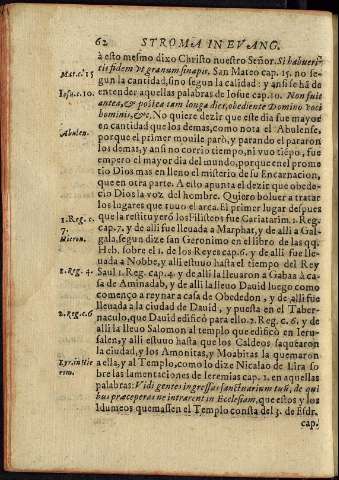 62 STROMA IN EVANG.
à esto mesmo dixo Christo nuestro Señor. Si habueri-
tis fidem vt granum sinapis. San Mateo cap. 15. no se-
gun la cantidad, sino segun la calidad: y ansi se ha de
entender aquellas palabras de Iosue cap. 10. Non fuit
antea, & postea tam longa dies, obediente Domino voci
hominis, &c. No quiere dezir que este dia fue mayor
en cantidad que los demas, como nota el Abulense,
porque el primer mouile parò, y parando el pararon
los demas, y ansi no corrio tiempo, ni vuo tiẽpo, fue
empero el mayor dia del mundo, porque en el prome
tio Dios mas en lleno el misterio de su Encarnacion,
que en otra parte. A esto apunta el dezir que obede-
cio Dios la voz del hombre. Quiero boluer a tratar
los lugares que touo el arca. El primer lugar despues
que la restituyerõ los Filisteos fue Cariatarim. 1. Reg.
cap. 7. y de alli fue lleuada a Marphat, y de alli a Gal-
gala, segun dize san Geronimo en el libro de las qq.
Heb. sobre el 1. de los Reyes cap. 6. y de alli fue lle-
uada a Nobbe, y alli estuuo hasta el tiempo del Rey
Saul 1. Reg. cap. 4. y de alli la lleuaron a Gabaà à ca-
sa de Aminadab, y de alli la lleuo Dauid luego como
començo a reynar a casa de Obededon, y de alli fue
lleuada a la ciudad de Dauid, y puesta en el Taber-
naculo, que Dauid edificò para ello. 2. Reg. c. 6. y de
alli la lleuo Salomon al templo que edificò en Ieru-
salen, y alli estuuo hasta que los Caldeos saquearon
la ciudad, y los Amonitas, y Moabitas la quemaron
a ella, y al Templo, como lo dize Nicalao de Lira so
bre las lamentaciones de Ieremias cap. 1. en aquellas
palabras: Vidi gentes ingressas sanctuarium tuũ, de qui
bus præceperas ne intrarent in Ecclesiam, que estos y los
Idumeos quemassen el Templo consta del 3. de Esdr.
cap.
Mat. c. 15
Iosu. c. 10.
Abulen.
1. Reg. c.
7.
Hieron.
1. Reg. 4.
2. Reg. c. 6
Lyr. in Hie
rem.